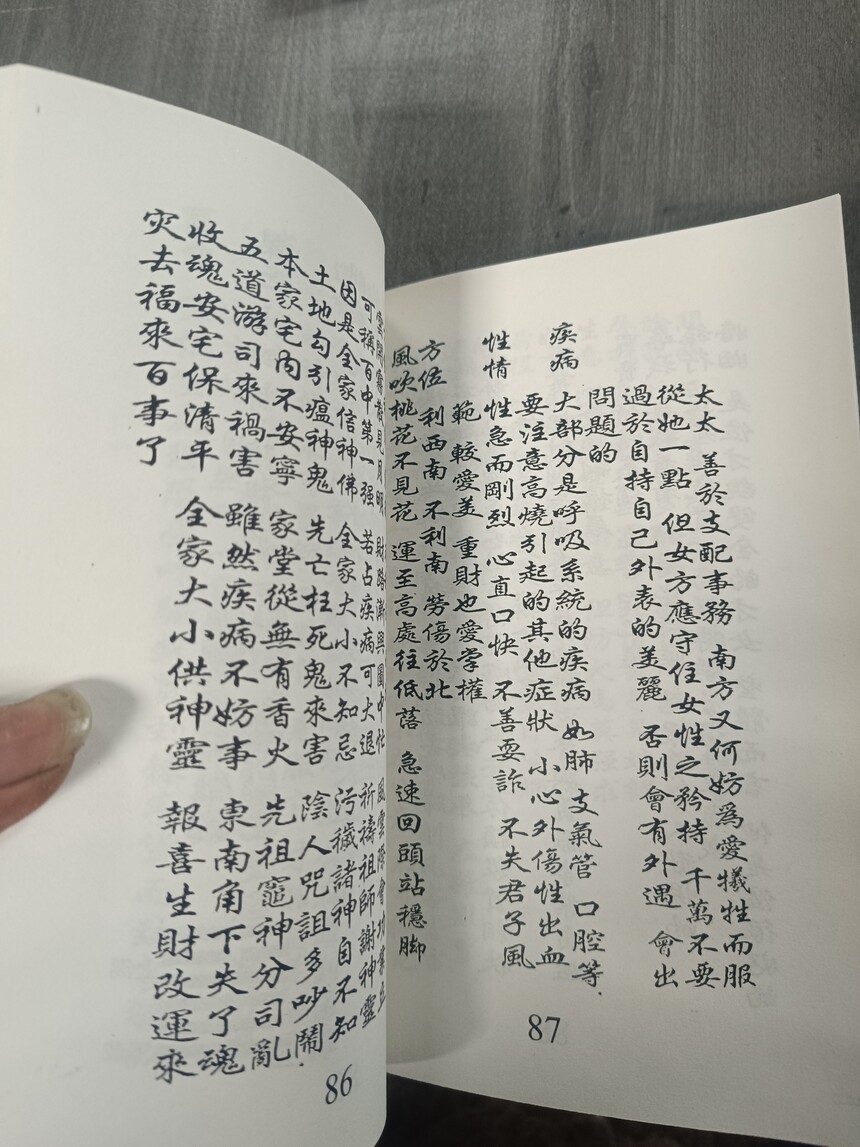 雲開霧散見月明 財路漸興圖中忙 風雲際會功業立
可稱百中第一强 若占疾病可大退 祈禱祖師謝神靈
因是全家信神佛 全家大小不知忌 污穢諸神自不知
土地勾引瘟神鬼 先亡枉死鬼來害 陰人咒詛多吵鬧
本家宅內不安寧 家堂從無有香火 先祖竈神分司亂
五道游司來禍害 雖然疾病不妨事 東南角下失了魂
收魂安宅保清平 全家大小供神靈 報喜生財改運來
灾去福來百事了
86
太太 善於支配事務 南方又何妨爲愛犧牲而服
從她一點 但女方應守住女性之矜持 千萬不要
過於自持自己外表的美麗 否則會有外遇 會出
問題的
疾病 大部分是呼吸系統的疾病 如肺 支氣管 口腔等.
要注意高燒引起的其他症狀 小心外傷性出血
性情 性急而剛烈 心直口快 不善耍詐 不失君子風
範 較愛美 重財也愛掌權
方位 利西南 不利南 勞傷於北
風吹桃花不見花 運至高處往低落 急速回頭站穩腳
87